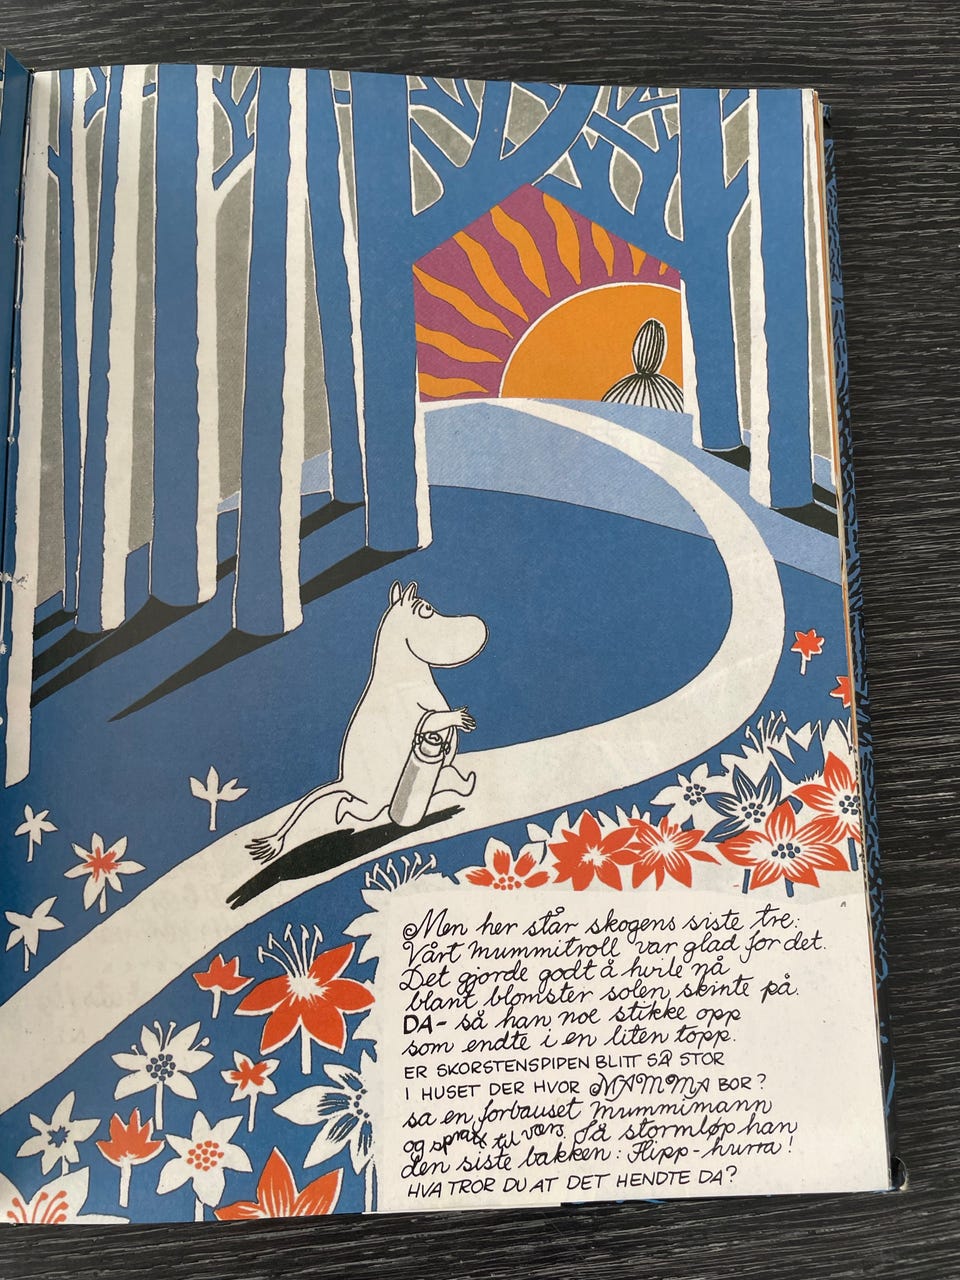 Men her står skogens siste tre.
Vårt mummitroll var glad for det.
Det gjorde godt å hvile nå
blant blomster solen skinte på.
DA- så han noe stikke opp
som endte i en liten topp.
ER SKORSTENSPIPEN BLITT SÅ STOR
I HUSET DER HVOR MAMMA BOR?
sa en forbauset mummimann
og spratt til værs. Så stormløp han
den siste bakken: Hipp-hurra!
HVA TROR DU AT DET HENDTE DA?